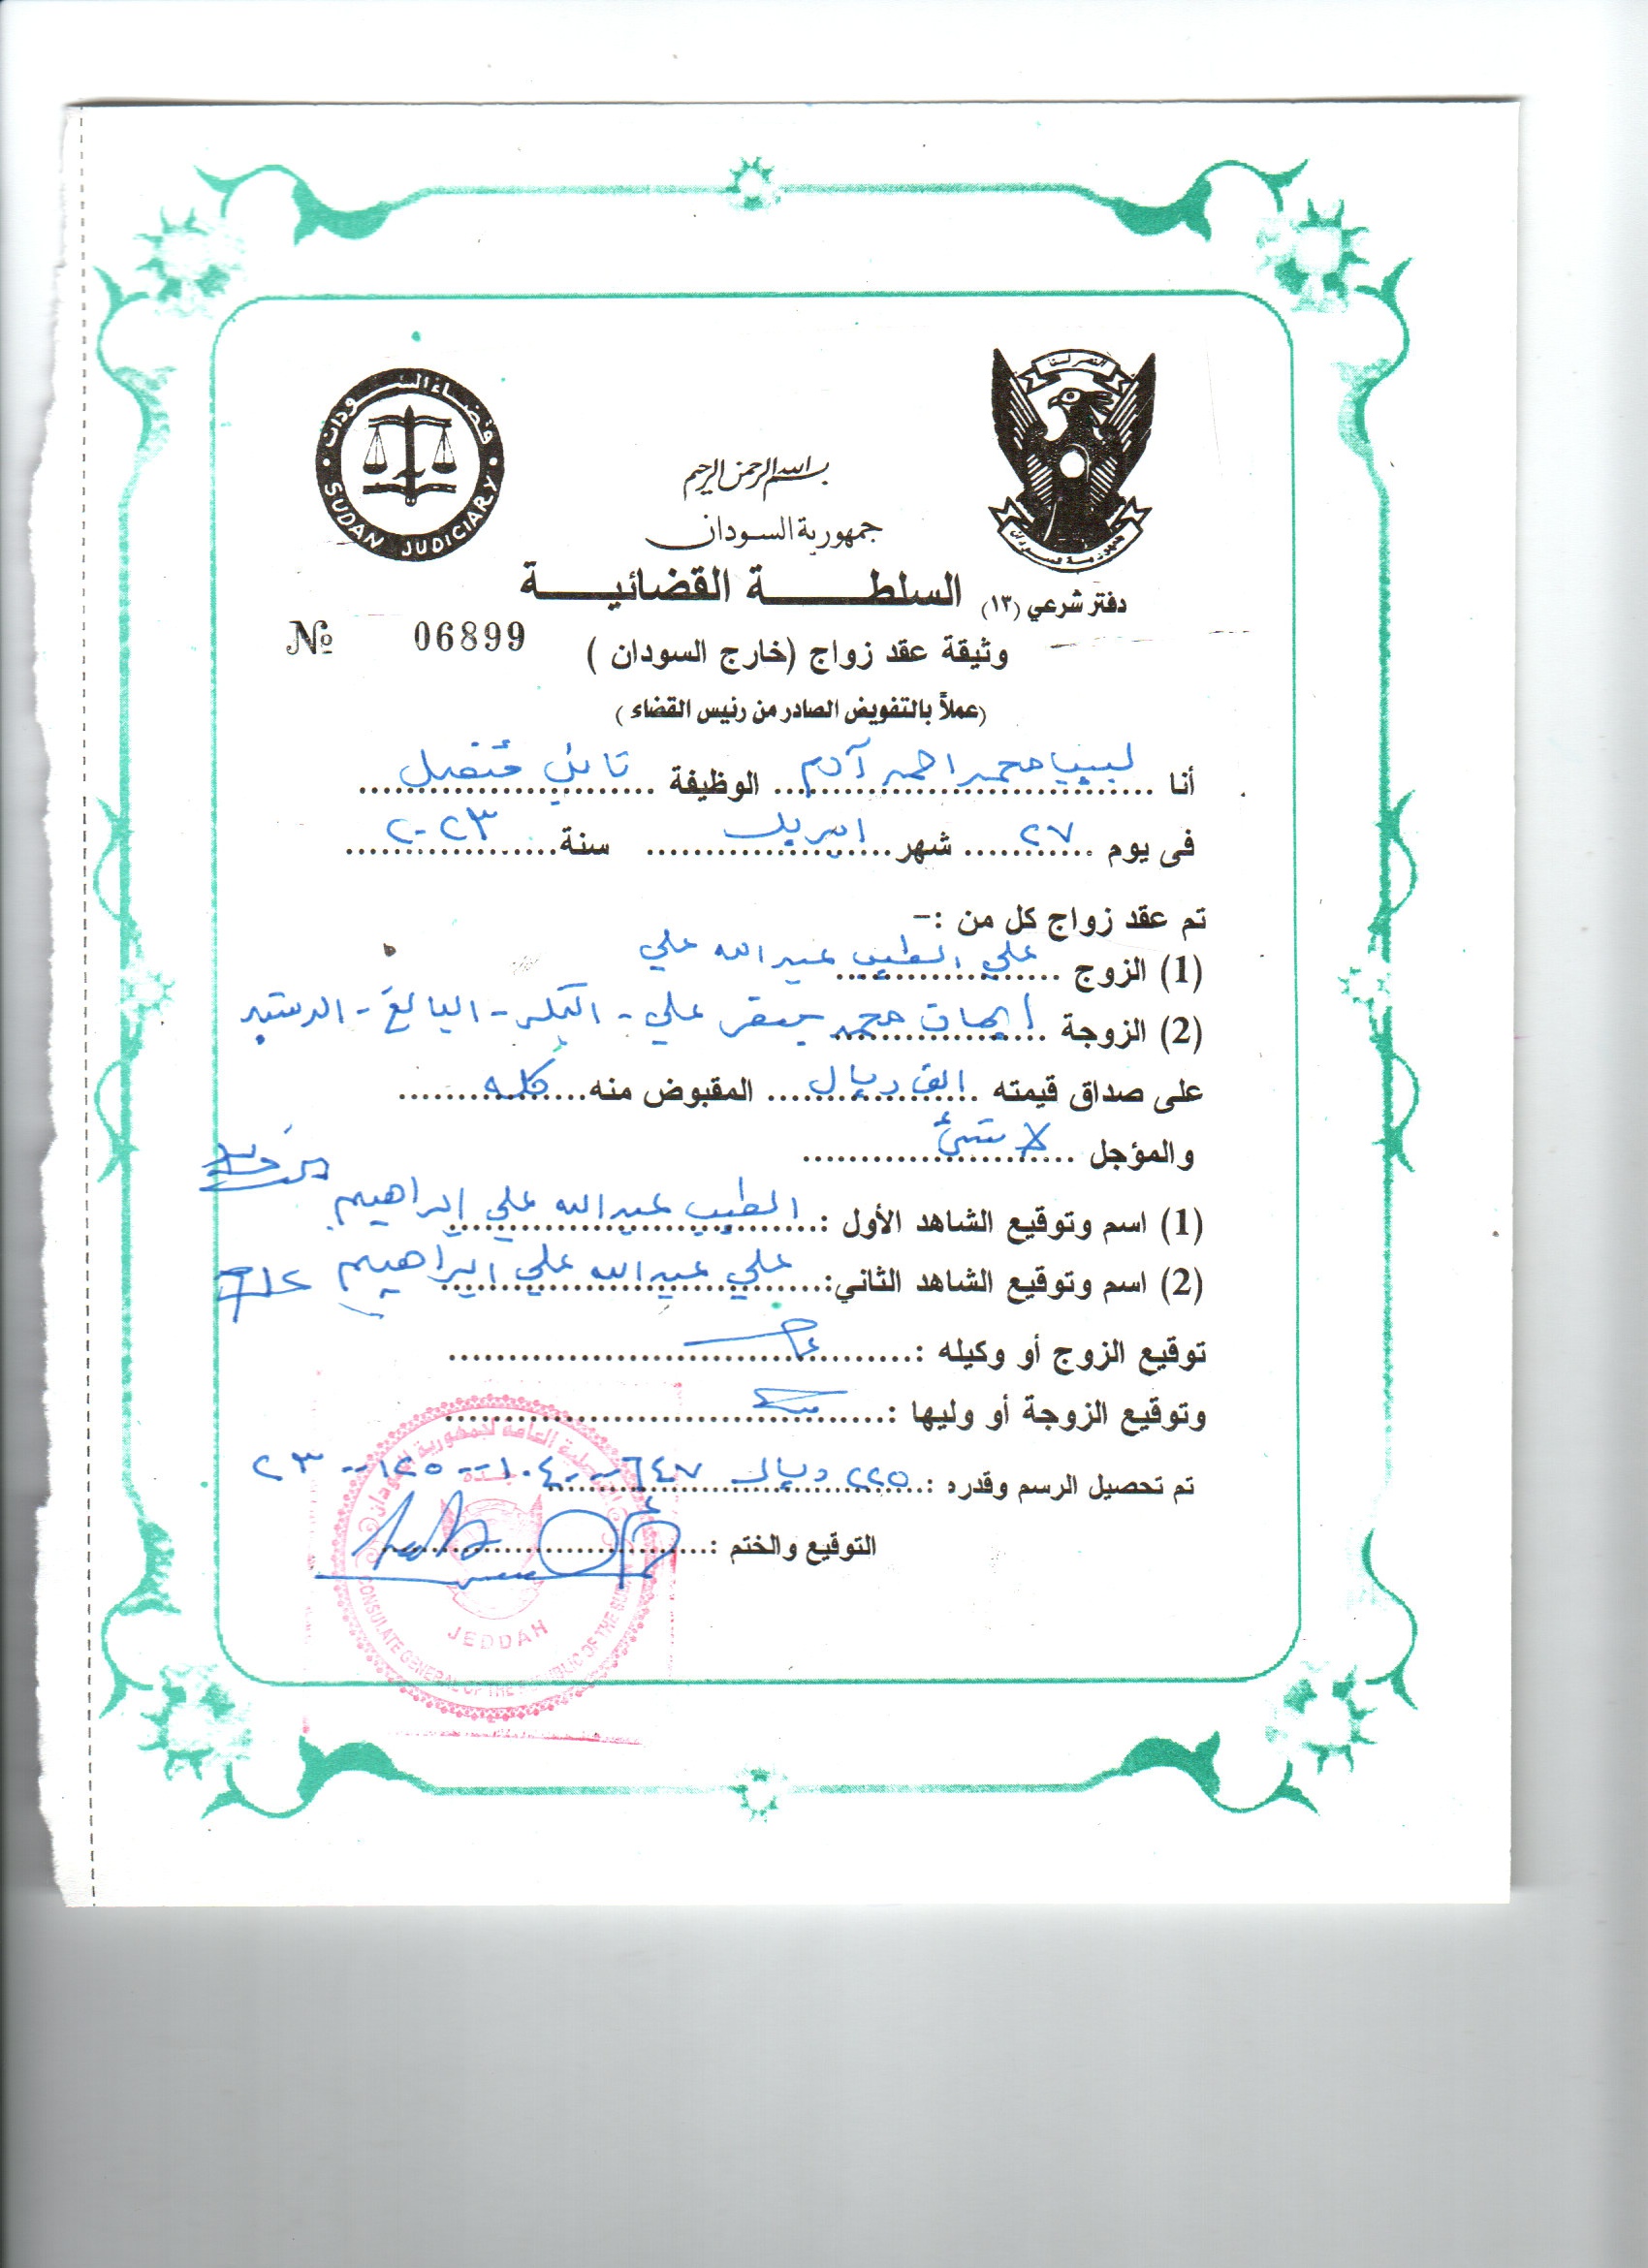 النصر لنا
قضاء السودان
SUDAN JUDICIARY
جمهورية السودان
بسم الله الرحمن الرحيم
جمهورية السودان
السلطة القضائية
دفتر شرعي (١٣)
№ 06899
وثيقة عقد زواج (خارج السودان )
(عملاً بالتفويض الصادر من رئيس القضاء )
أنا لبيب محمد احمد آدم الوظيفة نائب قنصل
فى يوم ٢٧ شهر ابريل سنة ٢٠٢٣
تم عقد زواج كل من :-
(1) الزوج علي الطيب عبد الله علي
(2) الزوجة محمد جعفر علي - البكر - البالغ - الرشيد
على صداق قيمته الف ريال المقبوض منه كله
والمؤجل لا شئ
(1) اسم وتوقيع الشاهد الأول : الطيب عبد الله علي إبراهيم
(2) اسم وتوقيع الشاهد الثاني: علي عبد الله علي ابراهيم
توقيع الزوج أو وكيله :
وتوقيع الزوجة أو وليها :
تم تحصيل الرسم وقدره : ٢٢٥ ريال
التوقيع والختم :
القنصلية العامة لجمهورية السودان
جدة
JEDDAH
CONSULATE GENERAL OF THE REPUBLIC OF THE SUDAN